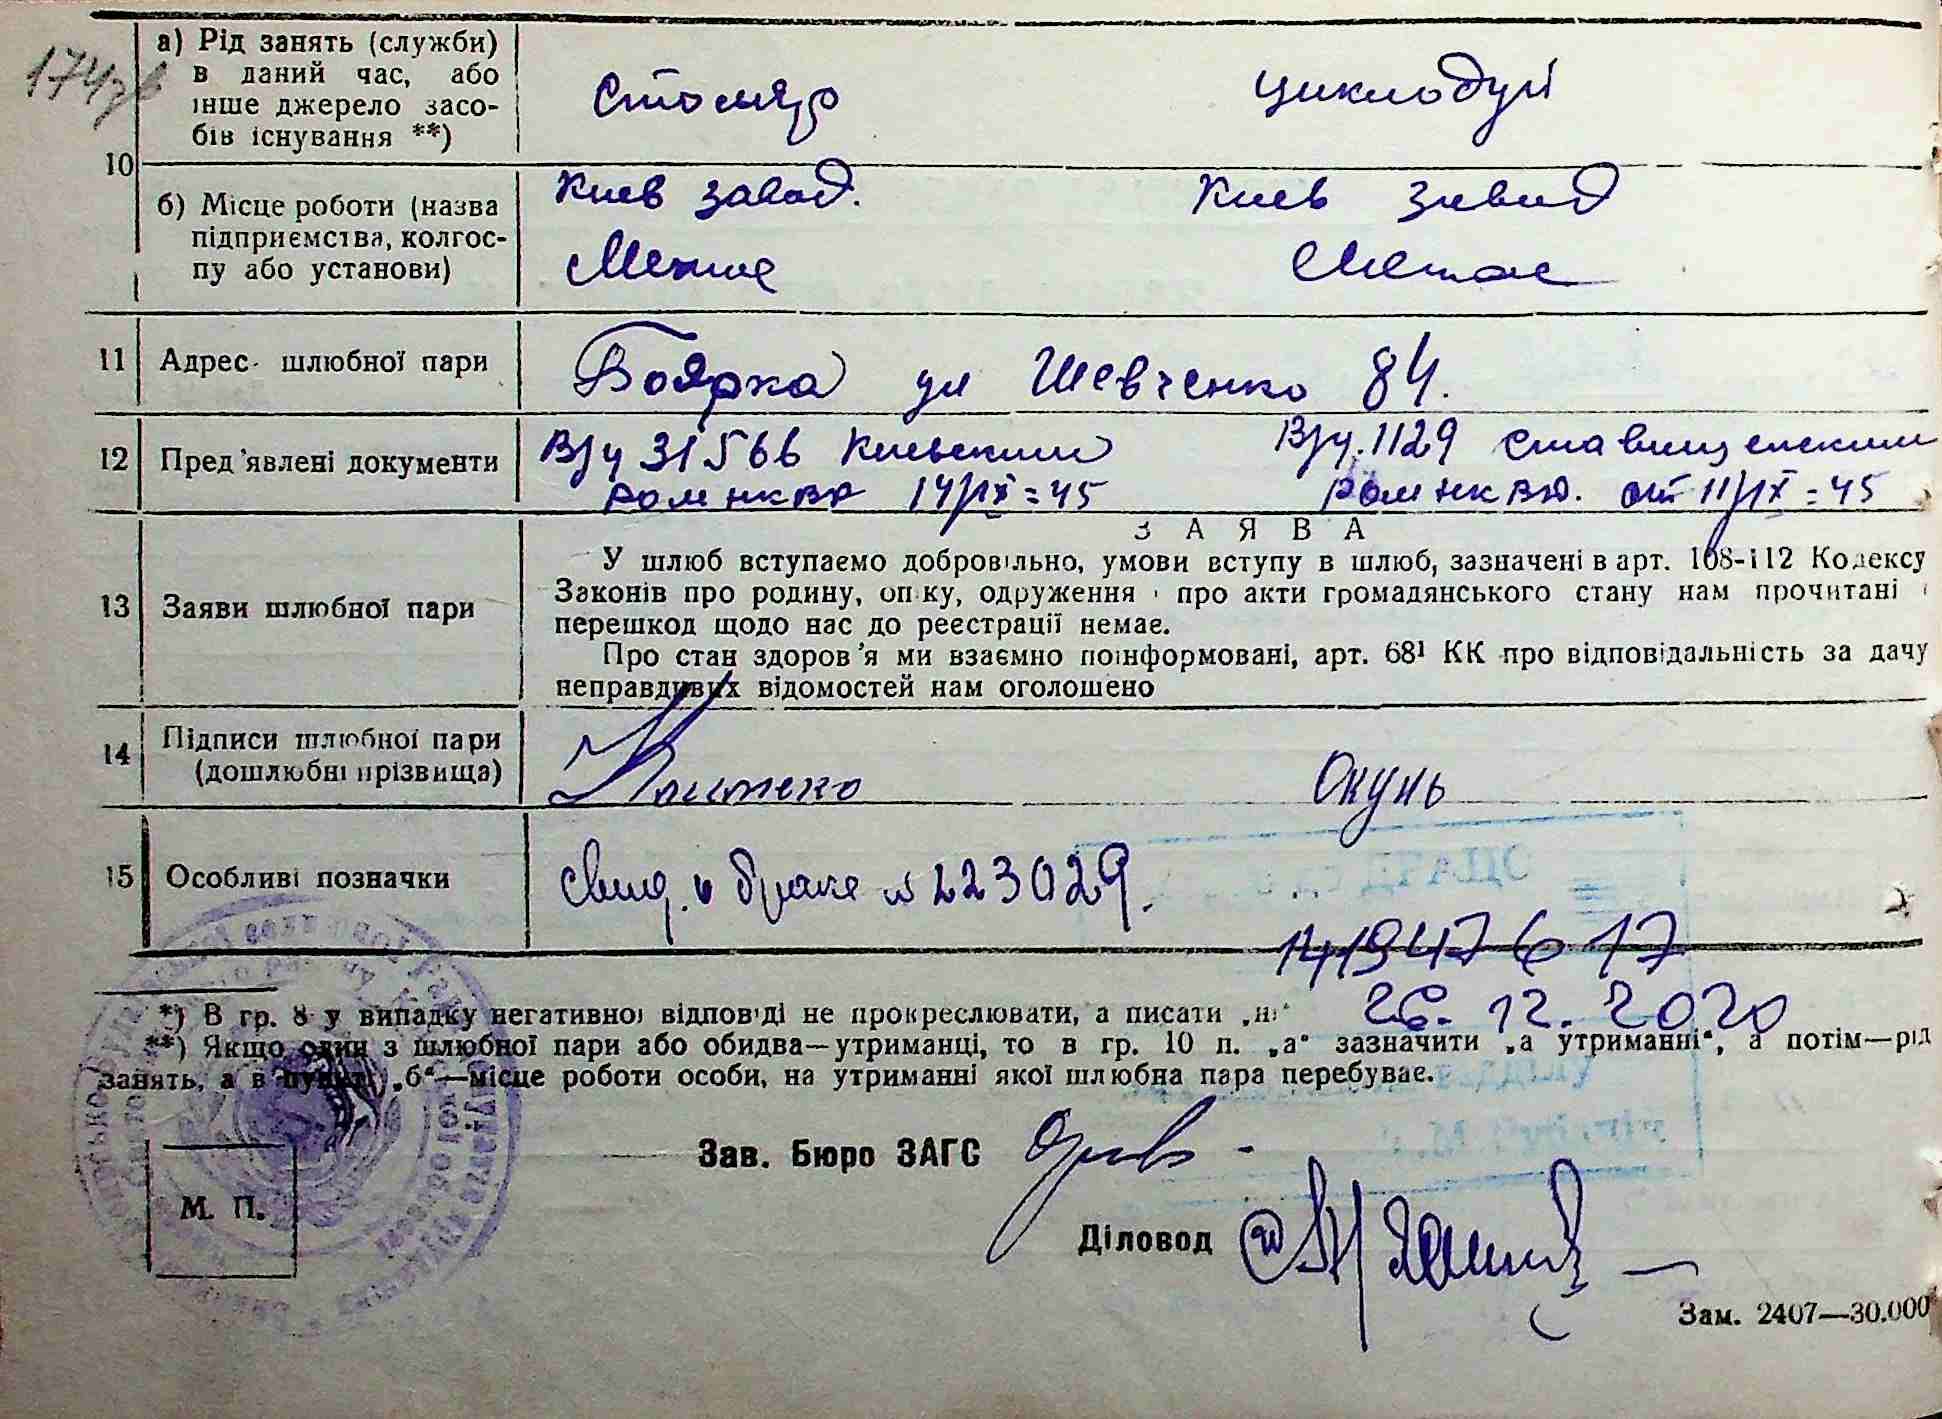 174 зв
10
а) Рід занять (служби) в даний час, або інше джерело засобів існування **)
Столяр
б) Місце роботи (назва підприємства, колгоспу або установи)
Киев завод.
Киев завод
11 Адрес шлюбної пари
Боярка ул Шевченко 84.
12 Пред'явлені документи
В/у 31566 Киевским
В/у. 1129 Ставищенским
14/IX=45
от 11/IX=45
ЗАЯВА
У шлюб вступаємо добровільно, умови вступу в шлюб, зазначені в арт. 108-112 Кодексу
13 Заяви шлюбної пари
Законів про родину, опіку, одруження і про акти громадянського стану нам прочитані і
перешкод щодо нас до реєстрації немає.
Про стан здоров'я ми взаємно поінформовані, арт. 68¹ КК про відповідальність за дачу
неправдивих відомостей нам оголошено
14 Підписи шлюбної пари
(дошлюбні прізвища)
Окунь
15 Особливі позначки
Свид. о браке № 223029.
ДРАЦС
26.12.2020
*) В гр. 8 у випадку негативної відповіді не прокреслювати, а писати „ні“
**) Якщо один з шлюбної пари або обидва—утриманці, то в гр. 10 п. „а“ зазначити „а утриманні“, а потім—рід
занять, а в пункті „б“—місце роботи особи, на утриманні якої шлюбна пара перебуває.
ВІДДІЛУ
Зав. Бюро ЗАГС
М. П.
Діловод
Зам. 2407—30.000